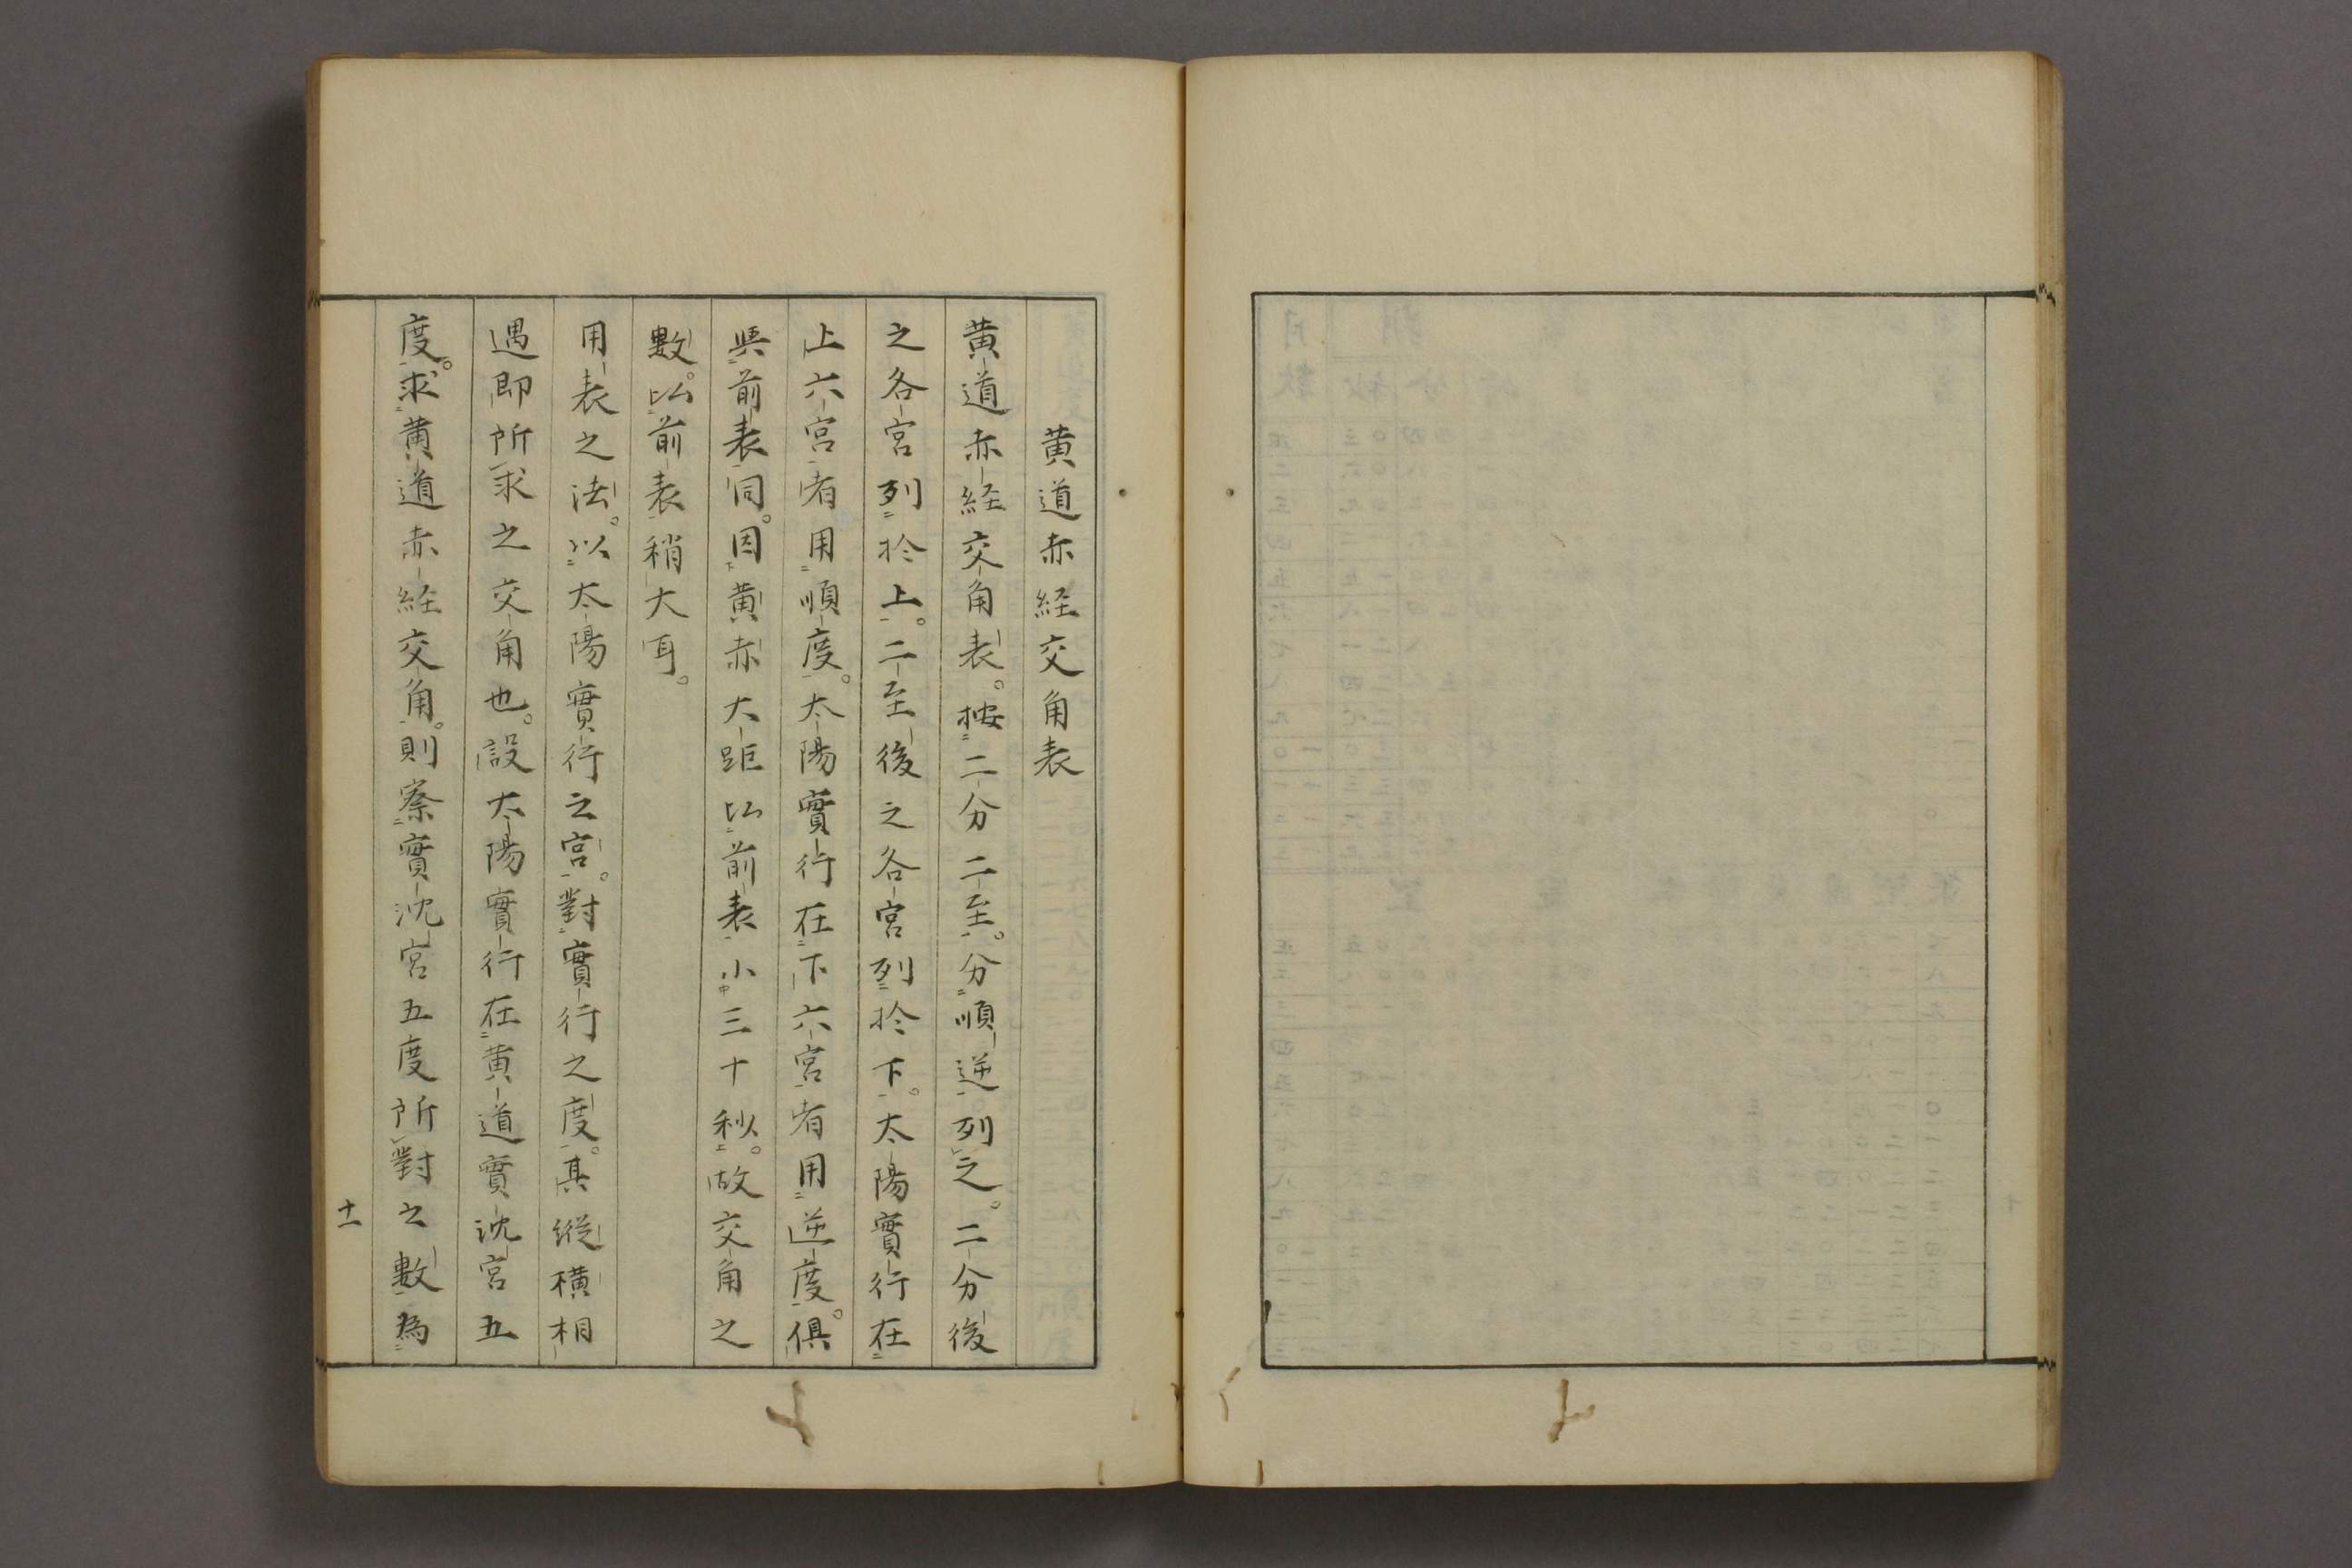 黄道赤経交角表
黄道赤経交角表。按二分二至。分順逆列之。二分後
之各宮列於上。二至後之各宮列於下。太陽實行在
上六宮者用順度。太陽實行在下六宮者用逆度。俱
與前表同。因黄赤大距比前表小三十秒。故交角之
數。比前表稍大耳。
用表之法。以太陽實行之宮。對實行之度。其縦横相
遇即所求之交角也。設太陽實行在黄道實沈宮五
度。求黄道赤経交角。則察實沈宮五度所對之數為
十一